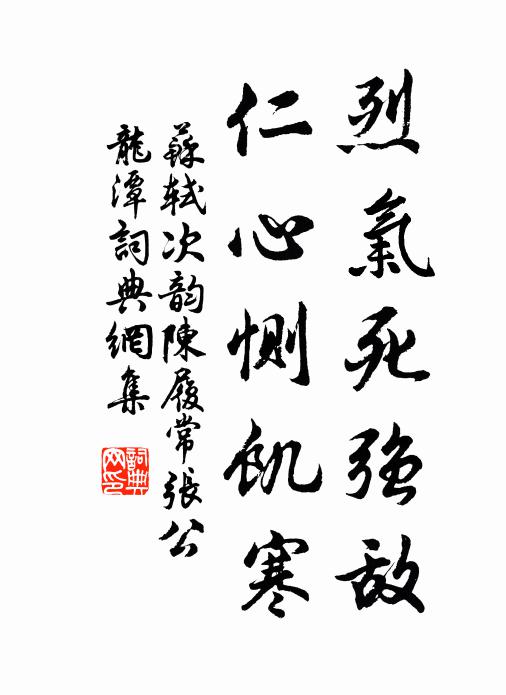 烈氣死強敵
仁心惻飢寒
蘇軾次韵陳履常張公
龍潭詞典網集
詞典网印